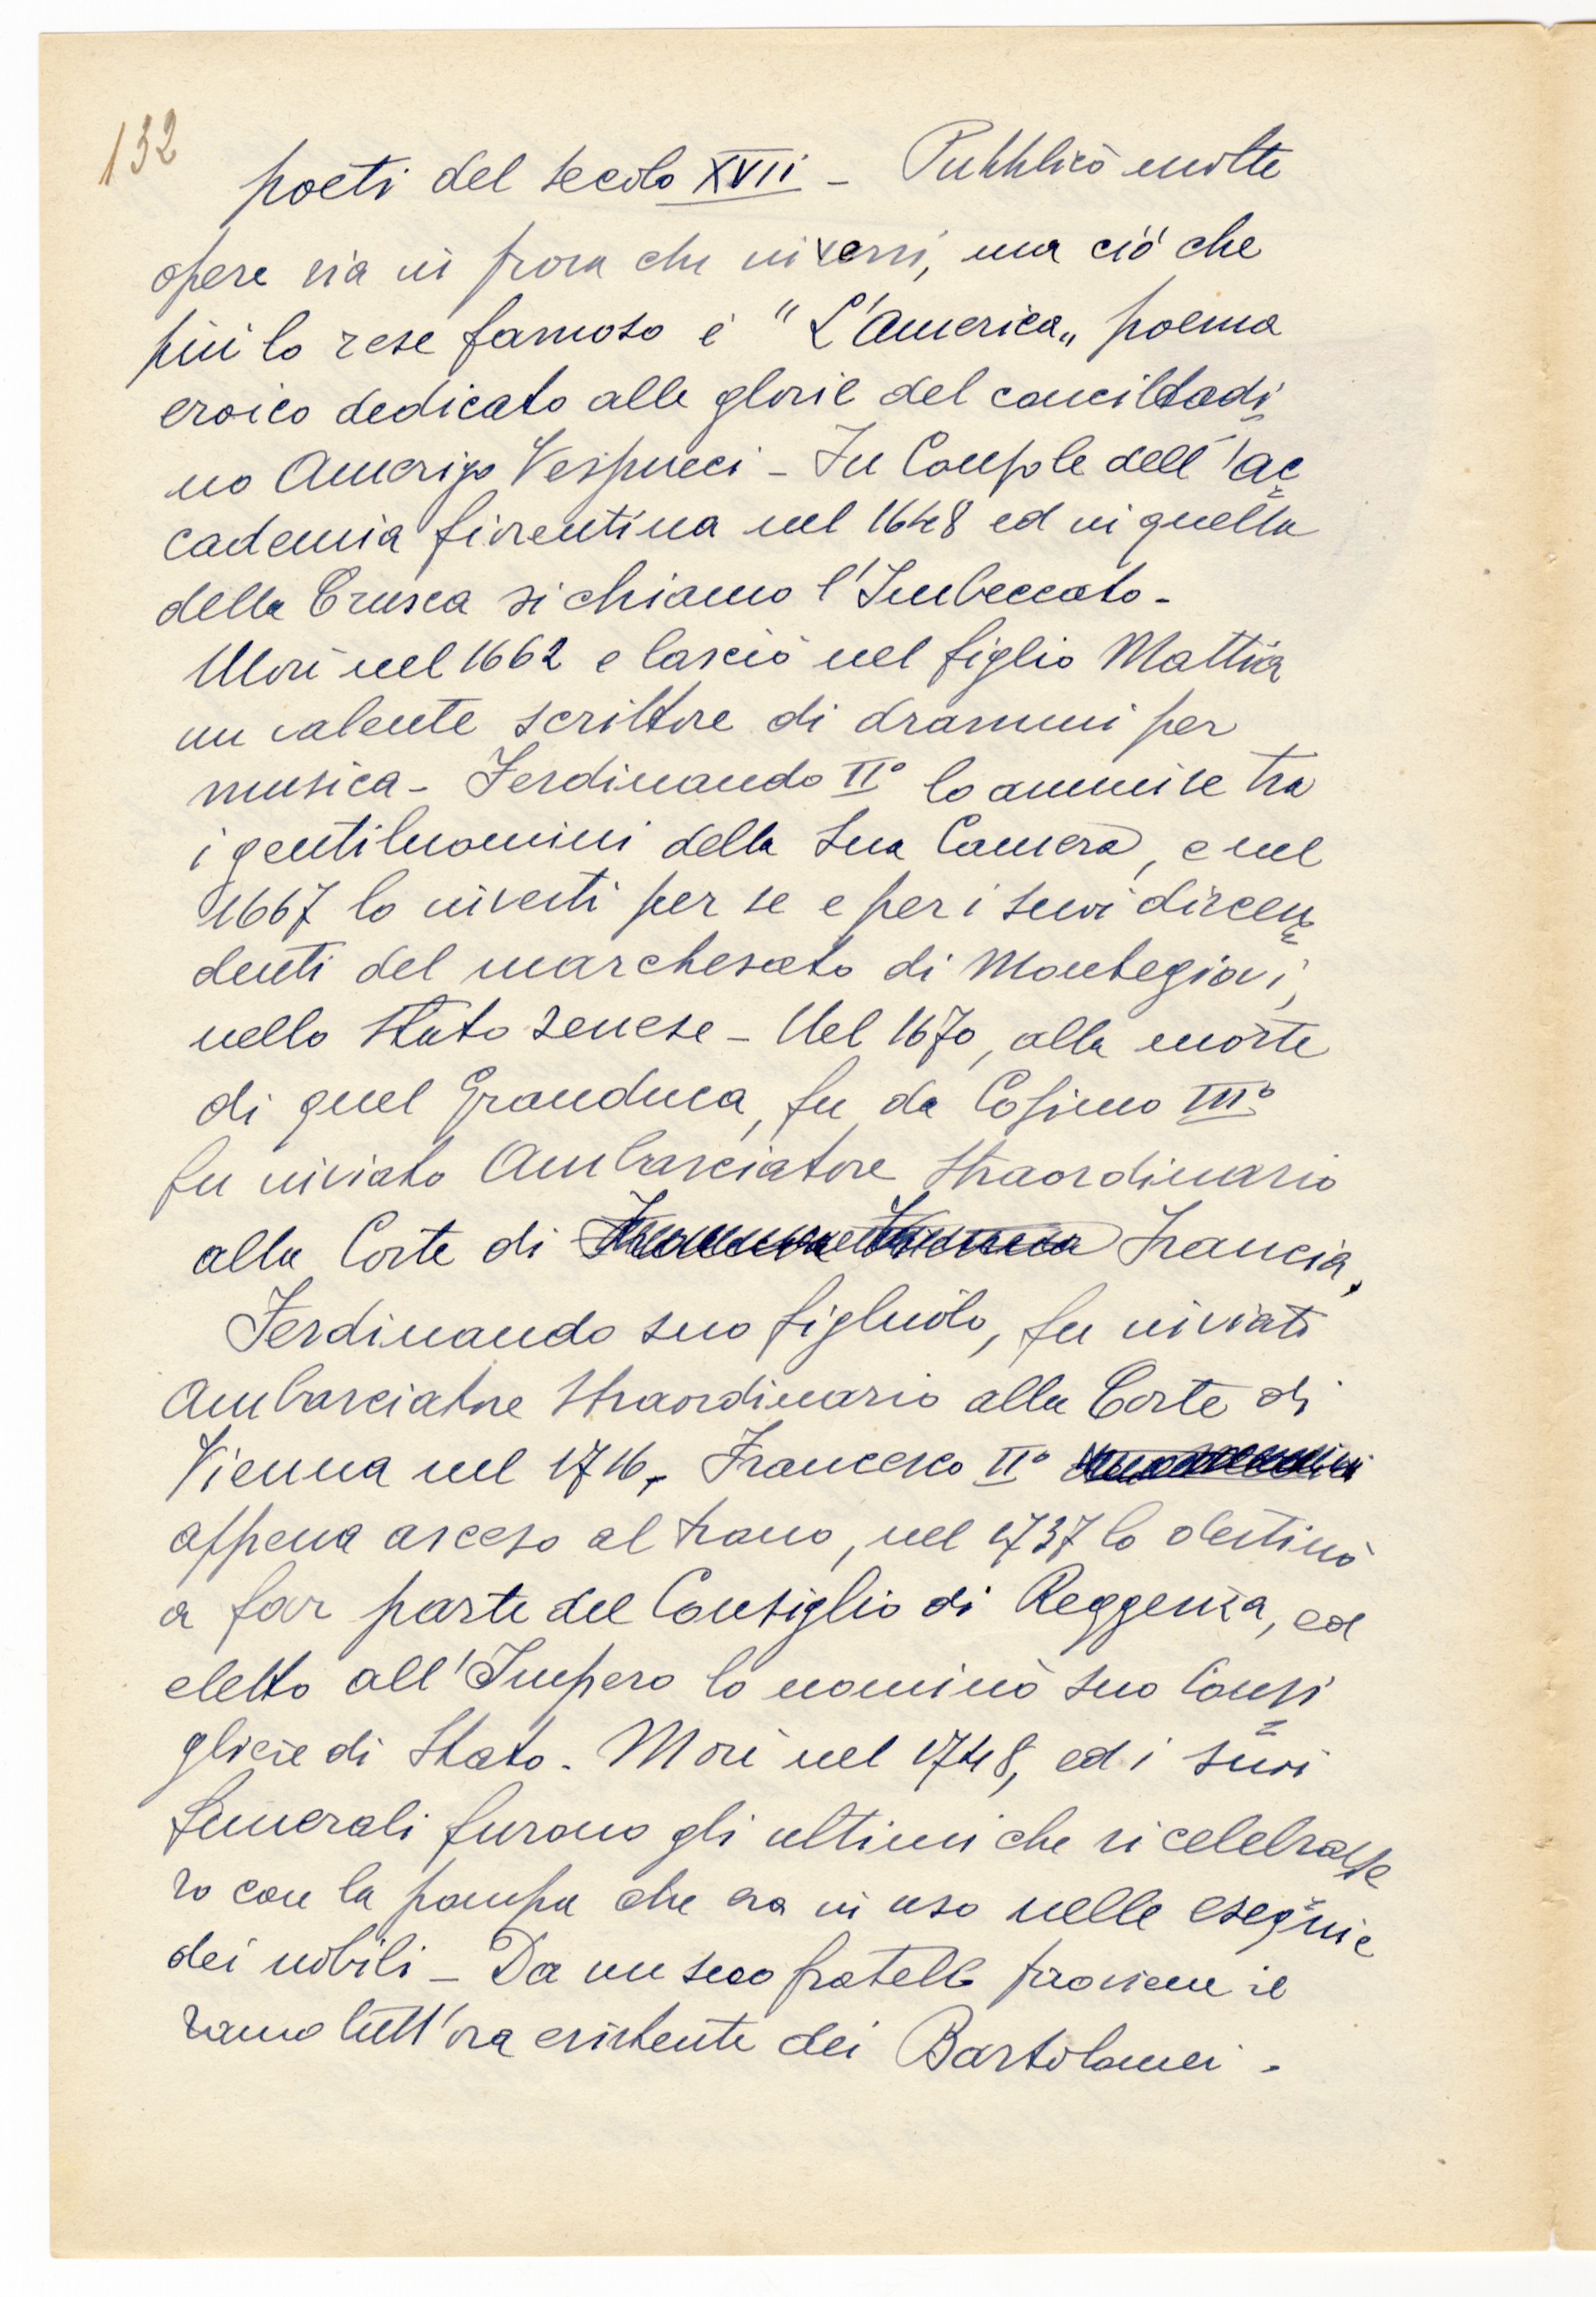 132
poeti del secolo XVII - Pubblicò molte
opere sia in prosa che in versi, ma ciò che
più lo rese famoso è "L'America" poema
eroico dedicato alle glorie del conciltadi
no Amerigo Vespucci - Fu Console dell'ac
cademia fiorentina nel 1648 ed in quella
della Crusca si chiamo l'Imbeccato -
Morì nel 1662 e lasciò nel figlio Mattia
un valente scrittore di drammi per
musica - Ferdinando II° lo ammise tra
i gentiluomini della sua Camera, e nel
1667 lo investì per se e per i suoi discen
denti del marchesato di Montegiovi,
nello Stato senese - Nel 1670, alla morte
di quel Granduca, fu da Cosimo III°
fu inviato Ambasciatore Straordinario
alla Corte di Francia,
Ferdinando suo figliuolo, fu inviato
Ambasciatore Straordinario alla Corte di
Vienna nel 1716, Francesco II°
appena asceso al trono, nel 1737 lo destinò
a far parte del Consiglio di Reggenza, ed
eletto all'Impero lo nominò suo Consi
gliere di Stato. Morì nel 1748, ed i suoi
funerali furono gli ultimi che si celebrasse
ro con la pompa che era in uso nelle esequie
dei nobili - Da un suo fratello proviene il
ramo tutt'ora esistente dei Bartolomei -